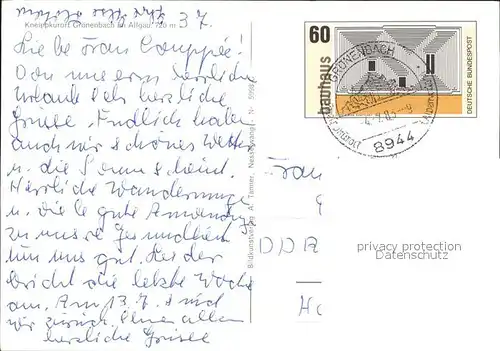 Kneippkurort Grönenbach im Allgäu 720 m
3 7.
Liebe Frau
Von unserem herrlichen
Urlaub sehr herzliche
Grüsse. Endlich haben
auch wir schönes Wetter
u. die Sonne scheint.
Herrliche Wanderungen
u. viele gute Anwendungen
zu unsere Gesundheit
tun uns gut. Leider
bricht die letzte Woche
an. Am 13.7. sind
wir zurück. Ihnen allen
herzliche Grüsse
Bildkunstverlag A. Tanner, Nesselwang
60
bauhaus
DEUTSCHE BUNDESPOST
GRÖNENBACH
8944
Frau
DDR
privacy protection
Datenschutz